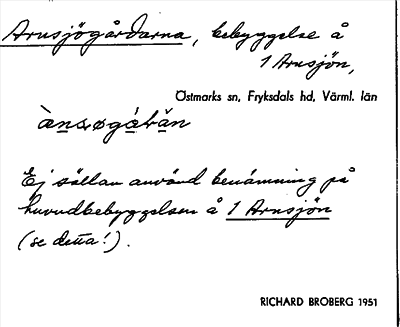 Arnsjögårdarna, bebyggelse å
1 Arnsjön,
Östmarks sn, Fryksdals hd, Värml. län
Ej sällan använd benämning på
huvudbebyggelsen å 1 Arnsjön
(se detta!).
RICHARD BROBERG 1951